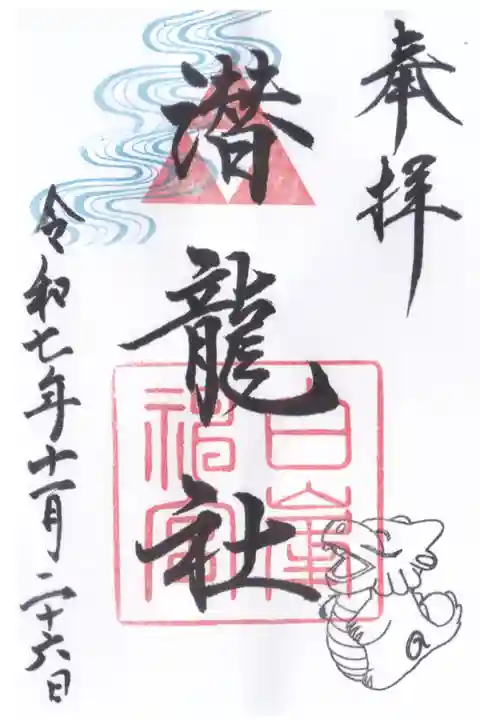 奉拝
潜龍社
白峯神宮
令和七年十一月二十六日